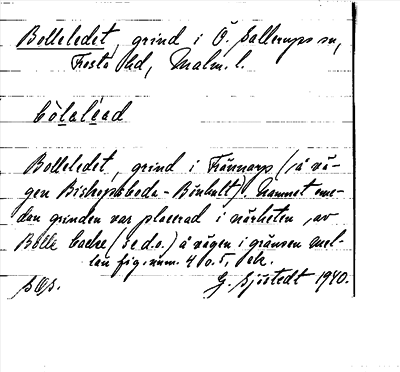 Bolleledet, grind i Ö. Sallerups sn,
Frosta hd, Malm. l.
bòlalèad
Bolleledet, grind i Trännarp (å vä-
gen Bishopsboda - Bönhult). Namnet me-
dan grinden var placerad i närheten av
Bolle backe (se d.o.) å vägen i gränsen mel-
lan fig.num. 4 o. 5, ek.
G. Sjöstedt 1940.